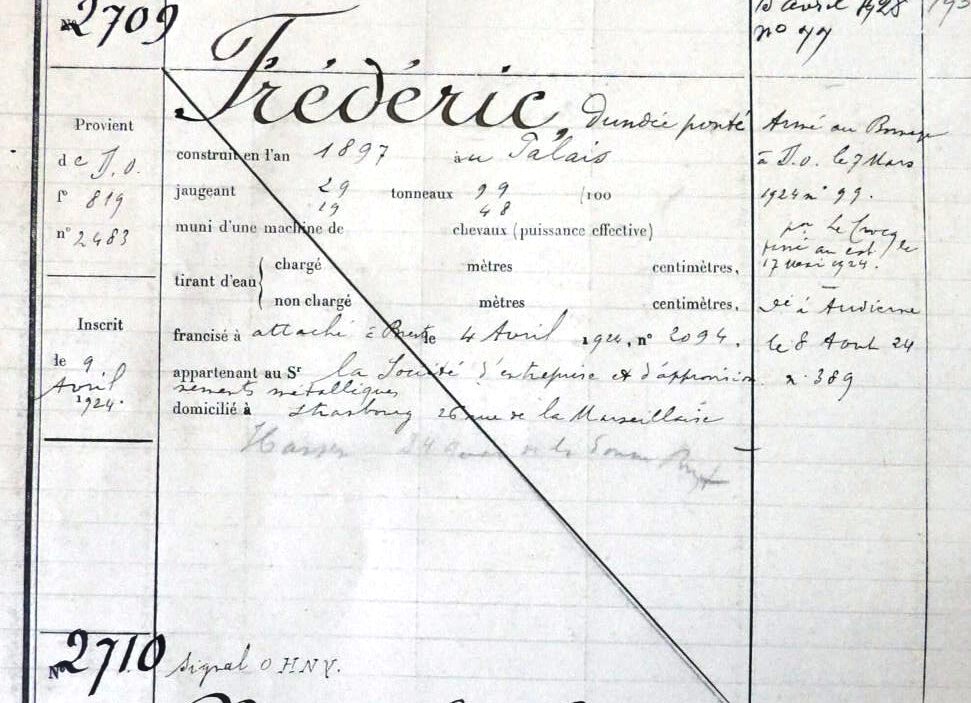 Nº 2709
Frédéric, dundée ponté
Provient
de D.o.
fº 819
nº 2483
construit en l'an 1897 au Palais
jaugeant 29 tonneaux 99 /100
19 48
muni d'une machine de chevaux (puissance effective)
tirant d'eau { chargé mètres centimètres,
non chargé mètres centimètres,
Inscrit
le 9
Avril
1924.
francisé à attaché à Brest le 4 Avril 1924, nº 2094.
appartenant au Sr la Société d'entreprise et d'approvision
nements métalliques
domicilié à Strasbourg 26 rue de la Marseillaise
24 de la
avril 1928
nº 77
Armé au Bornage
à D.o. le 7 Mars
1924 nº 99.
par Le
le
17 1924.
Dé à Audierne
le 8 Aout 24
n. 389
Nº 2710 Signal OHNV.